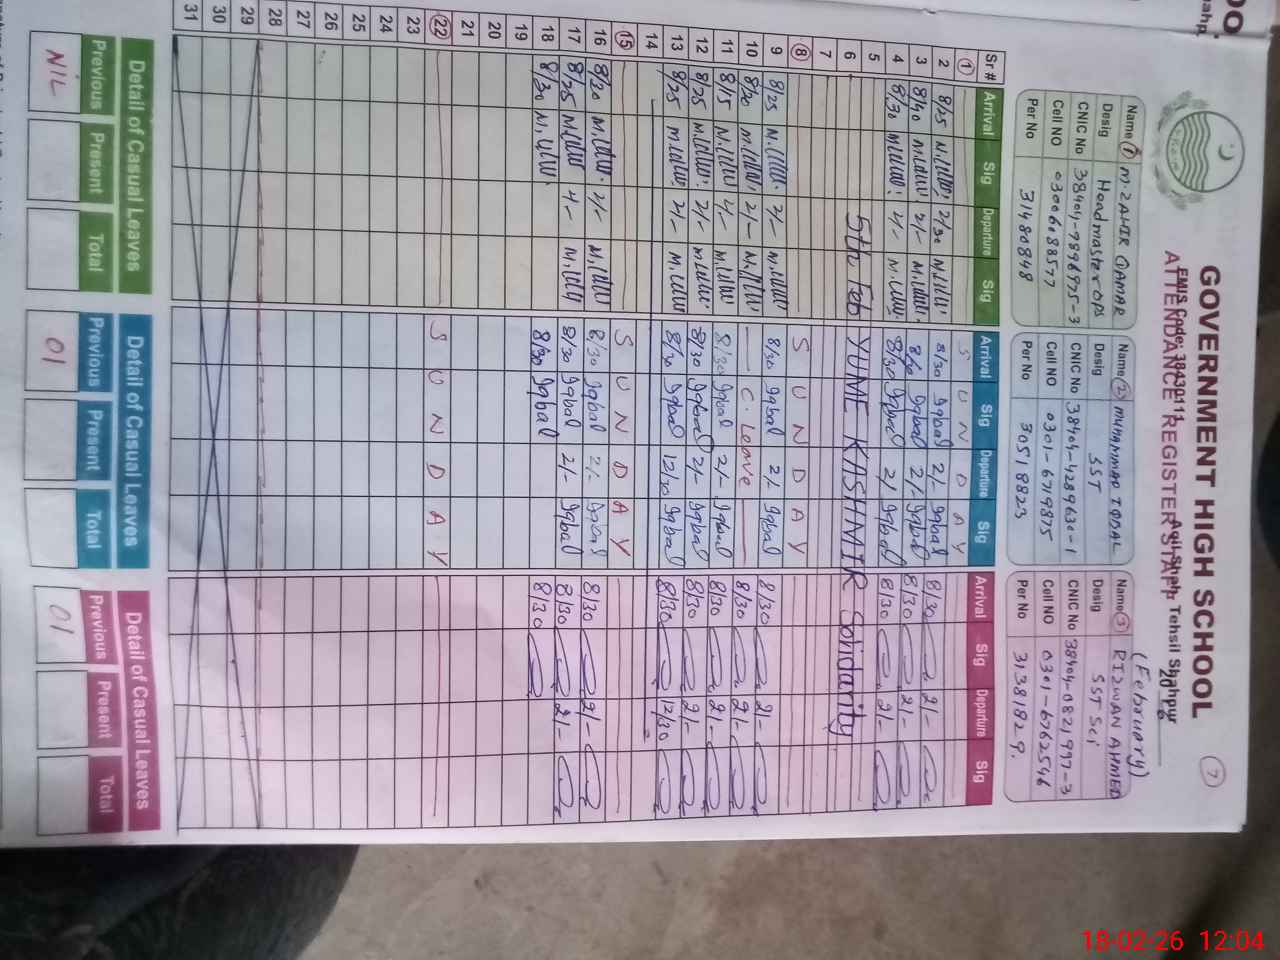 GOVERNMENT HIGH SCHOOL
7
EMIS Code: 38430111 Aqil Shah Tehsil Shahpur
ATTENDANCE REGISTER STAFF
(February)
Name 1 M. ZAHIR QAMAR
Desig Headmaster OPS
CNIC No 38404-9896975-3
Cell NO 03006088577
Per No 31480848
Name 2 MUHAMMAD IQBAL
Desig SST
CNIC No 38404-4289630-1
Cell NO 0301-6719875
Per No 30518823
Name 3 RIZWAN AHMED
Desig SST Sci
CNIC No 38404-0821997-3
Cell NO 0301-6762546
Per No 31381829.
Sr # Arrival Sig Departure Sig Arrival Sig Departure Sig Arrival Sig Departure Sig
1 S U N D A Y
2 8/25 2/30 8/30 Iqbal 2/- Iqbal 8/30 2/-
3 8/40 2/- 8/30 Iqbal 2/- Iqbal 8/30 2/-
4 8/30 2/- 8/30 Iqbal 2/- Iqbal 8/30 2/-
5 5th Feb YUME KASHMIR Solidarity
6
7
8 S U N D A Y
9 8/25 2/- 8/30 Iqbal 2/- Iqbal 8/30 2/-
10 8/20 2/- C. Leave 8/30 2/-
11 8/15 8/30 Iqbal 2/- Iqbal 8/30 2/-
12 8/25 2/- 8/30 Iqbal 2/- Iqbal 8/30 2/-
13 8/25 2/- 8/30 Iqbal 12/30 Iqbal 8/30 12/30
14
15 S U N D A Y
16 8/20 2/- 8/30 Iqbal 2/- Iqbal 8/30 2/-
17 8/25 8/30 Iqbal 2/- Iqbal 8/30 2/-
18 8/30 8/30 Iqbal 8/30
19
20
21
22 S U N D A Y
23
24
25
26
27
28
29
30
31
Detail of Casual Leaves Detail of Casual Leaves Detail of Casual Leaves
Previous Present Total Previous Present Total Previous Present Total
NIL 01 01
18-02-26 12:04